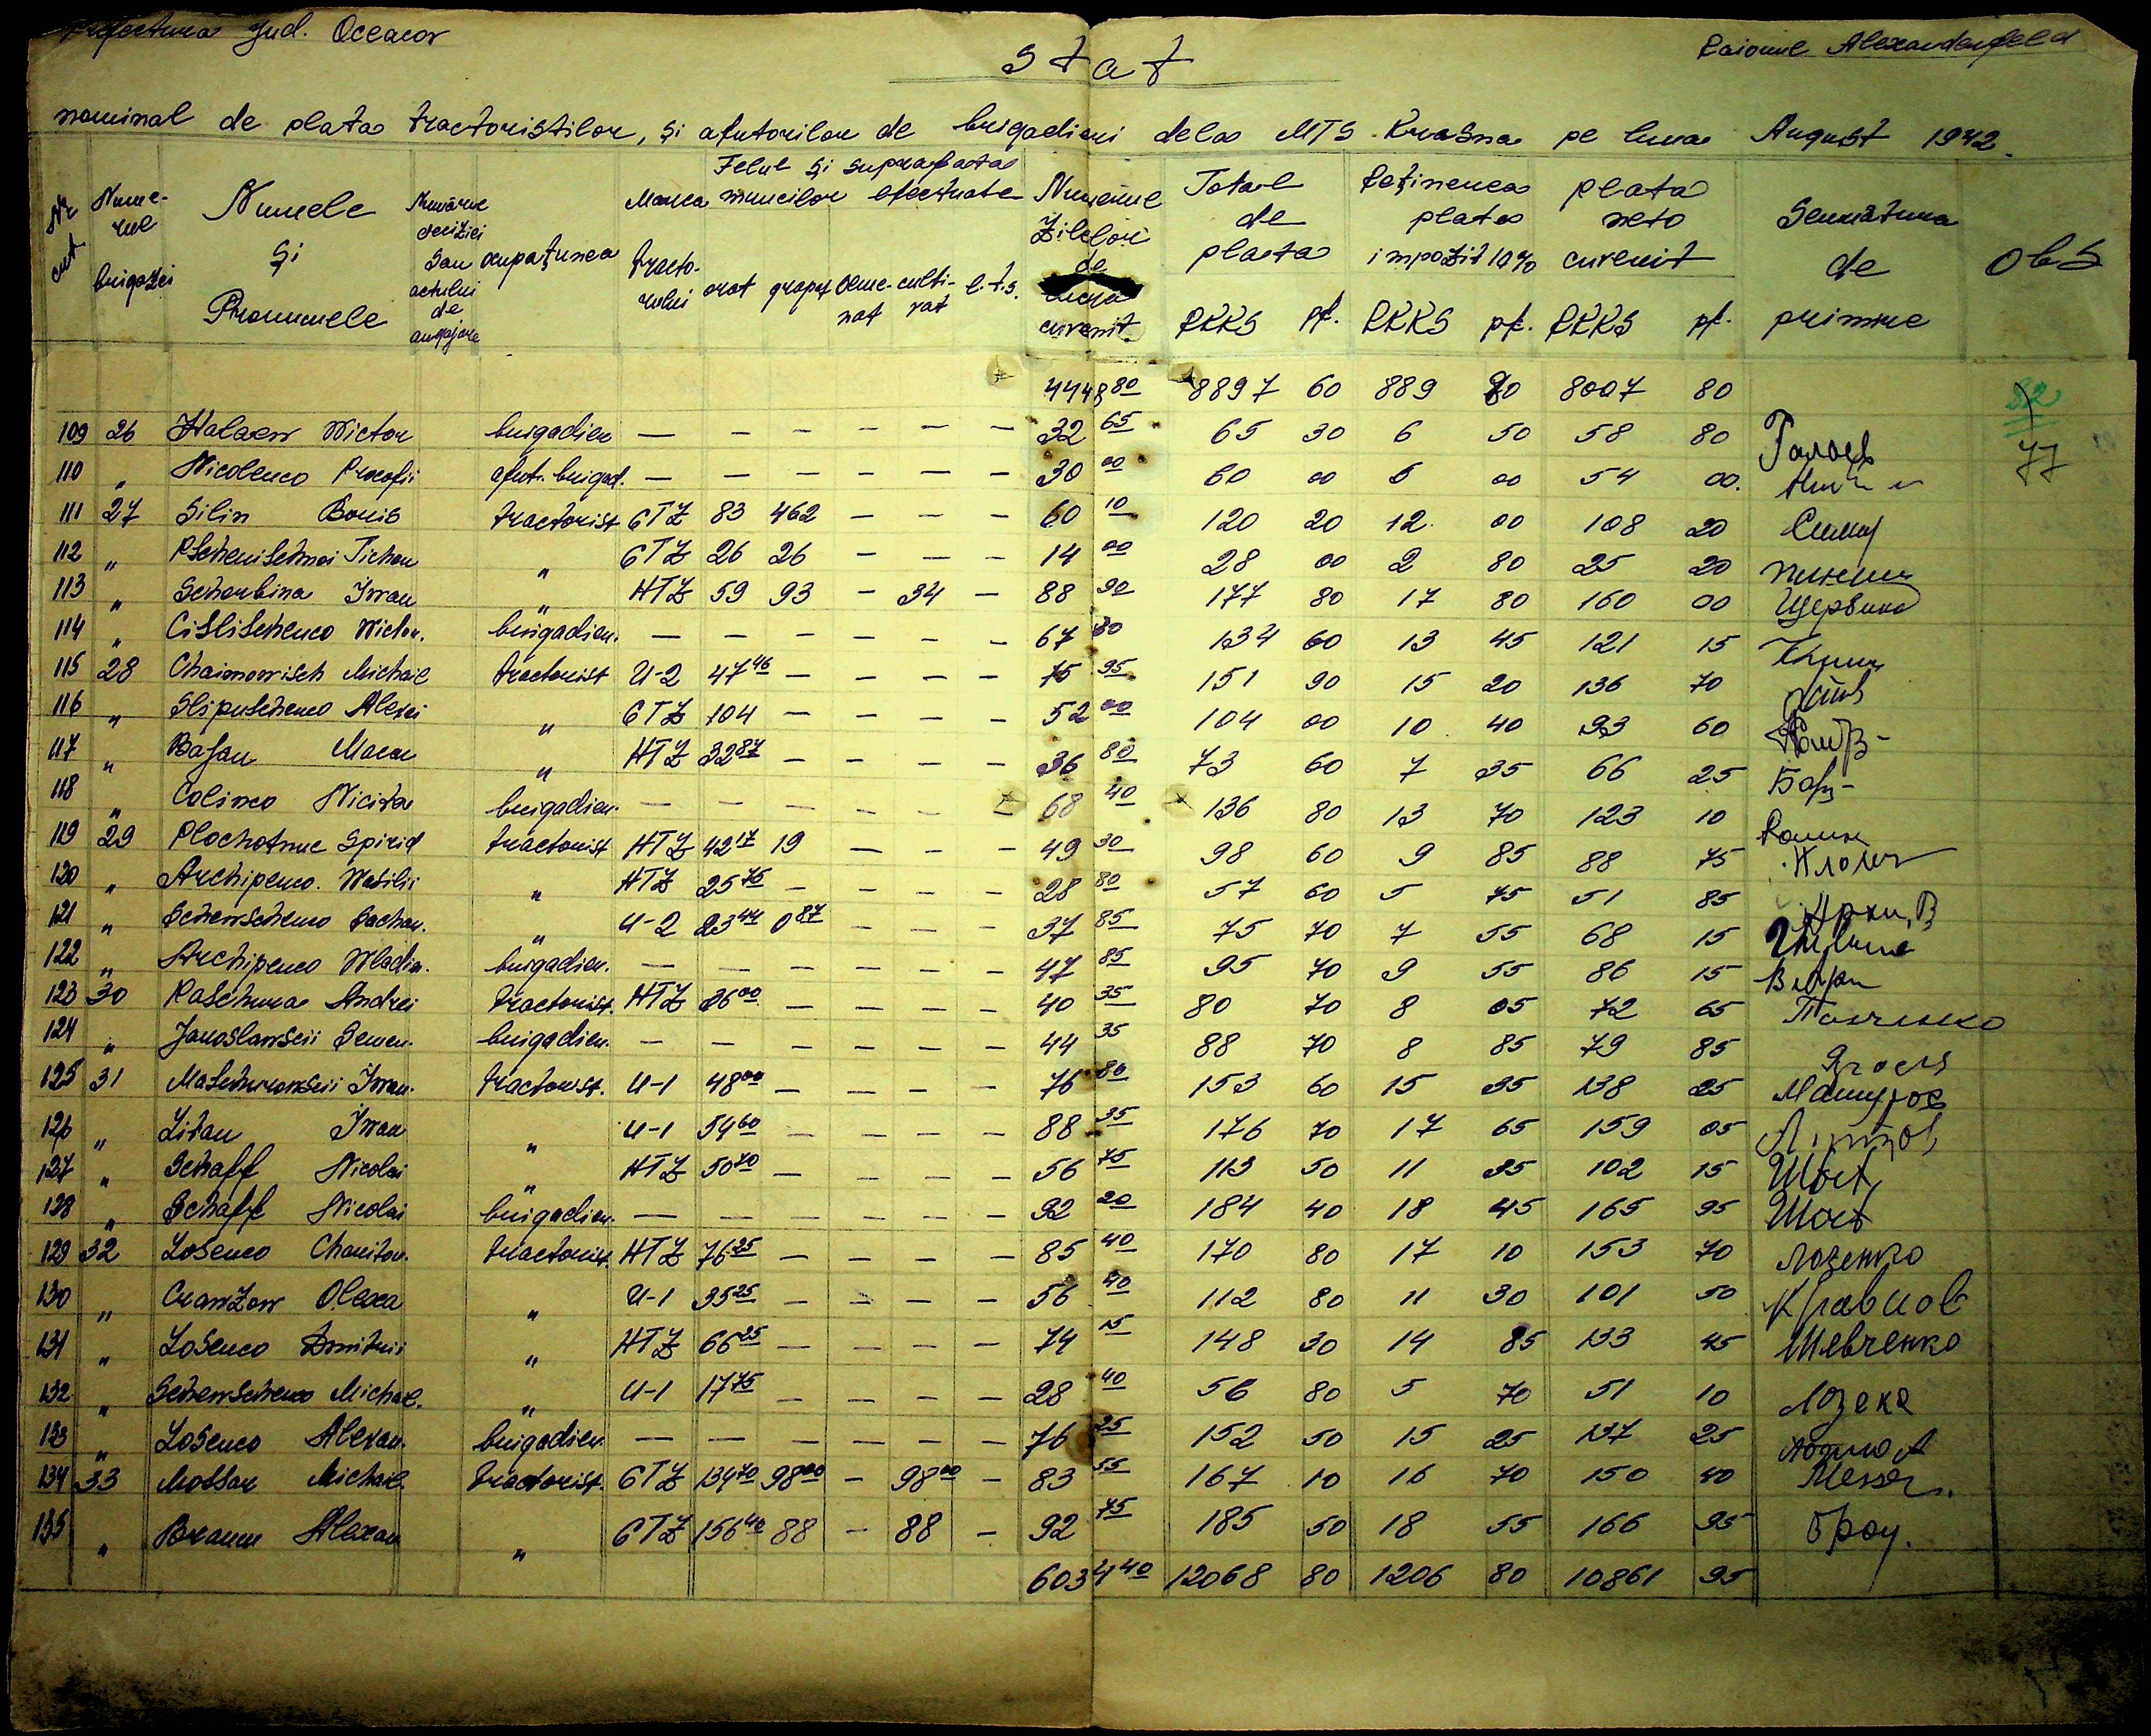 Prefectura Jud. Oceacov
Raionul Alexanderfeld
Stat
nominal de plata tractoristilor, și ajutorilor de brigadieri dela MTS Krasna pe luna August 1942.
Nr crt. Numerul brigăzei Numele și Pronumele Numărul deciziei sau actului de angajare ocupațunea Marca tractorului Felul și suprafața muncilor efectuate arat grapat semenat cultivat l.t.s. Numărul Zilelor de curenit. Total de plata RKKS pf. Reținerea plata impozit 10% RKKS pf. plata neto cuvenit RKKS pf. Semnătura de primire Obs
4448 80 8897 60 889 80 8007 80
109 26 Halaew Wictor brigadier — — — — — — 32 65 65 30 6 50 58 80 Галаев 77
110 " Nicolenco Procofii ajut. brigad. — — — — — — 30 00 60 00 6 00 54 00.
111 27 Silin Boris tractorist CTZ 83 462 — — — 60 10 120 20 12 00 108 20
112 " Pschenischnoi Tichon " CTZ 26 26 — — — 14 00 28 00 2 80 25 20
113 " Scherbina Iwan " HTZ 59 93 — 34 — 88 90 177 80 17 80 160 00 Щербина
114 " Cislischenco Wictor. brigadier. — — — — — — 67 30 134 60 13 45 121 15
115 28 Chaimowisch Michail tractorist U-2 47 46 — — — — 75 95 151 90 15 20 136 70
116 " Slipuschenco Alexei " CTZ 104 — — — — 52 00 104 00 10 40 93 60
117 " Bajan Macar " HTZ 32 87 — — — — 36 80 73 60 7 35 66 25
118 " Colinco Nicita brigadier. — — — — — — 68 40 136 80 13 70 123 10
119 29 Plochotnuc Spirid tractorist HTZ 42 17 19 — — — 49 30 98 60 9 85 88 75
120 " Archipenco. Wasilii " HTZ 25 75 — — — — 28 80 57 60 5 75 51 85
121 " Schewschenco Sachar. " U-2 23 44 0 87 — — — 37 85 75 70 7 55 68 15
122 " Archipenco Wladim. brigadier. — — — — — — 47 85 95 70 9 55 86 15
123 30 Paschura Andrei tractorist. HTZ 36 00 — — — — 40 35 80 70 8 05 72 65
124 " Jaroslawscii Semen. brigadier. — — — — — — 44 35 88 70 8 85 79 85
125 31 Maschurowscii Iwan. tractorist. U-1 48 00 — — — — 76 80 153 60 15 35 138 25
126 " Litau Iwan " U-1 54 60 — — — — 88 35 176 70 17 65 159 05
127 " Schaff Nicolai " HTZ 50 70 — — — — 56 75 113 50 11 35 102 15
128 " Schaff Nicolai brigadier. — — — — — — 92 20 184 40 18 45 165 95
129 32 Losenco Chariton. tractorist. HTZ 76 25 — — — — 85 40 170 80 17 10 153 70 Лозенко
130 " Crawzow Olexa " U-1 35 25 — — — — 56 40 112 80 11 30 101 50 Кравцов
131 " Losenco Dmitrii " HTZ 66 25 — — — — 74 15 148 30 14 85 133 45 Шевченко
132 " Schewschenco Michail. " U-1 17 75 — — — — 28 40 56 80 5 70 51 10
133 " Losenco Alexan. brigadier. — — — — — — 76 25 152 50 15 25 137 25
134 33 Mossar Michail tractorist. CTZ 134 70 98 00 — 98 00 — 83 55 167 10 16 70 150 40
135 " Braun Alexan " CTZ 156 40 88 — 88 — 92 75 185 50 18 55 166 95 Брау.
6034 40 12068 80 1206 80 10861 95